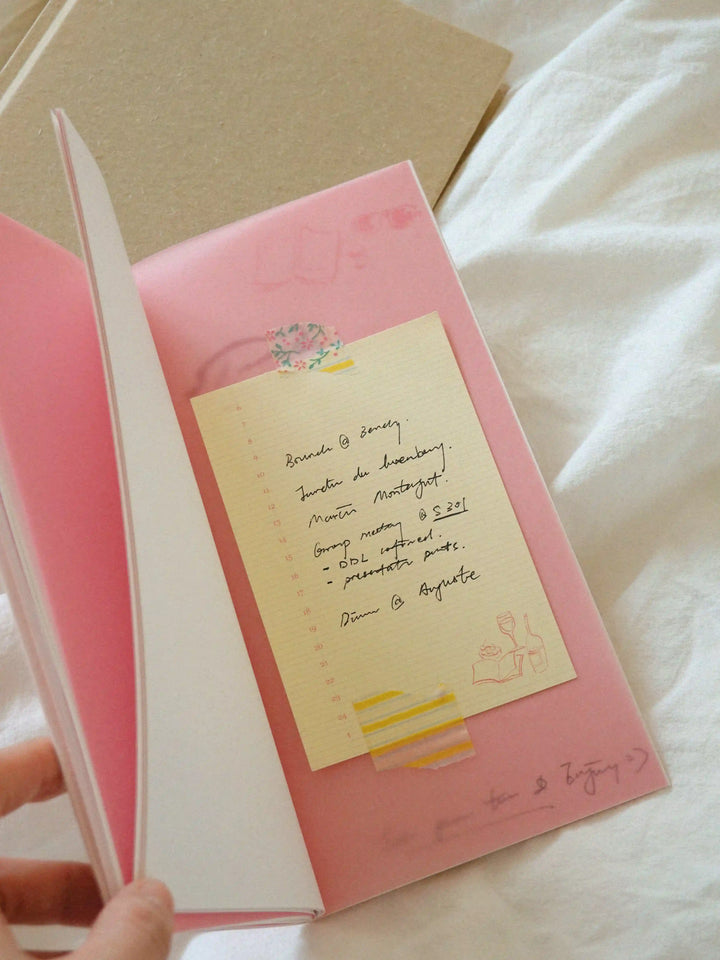 6
7
8
9
10
11
12
13
14
15
16
17
18
19
20
21
22
23
24
1
Brunch @ Benedy.
Jardin du Luxembourg.
Martin Montagut.
Group meeting @ S301
- DDL confirmed.
- presentatn parts.
Dinner @ Auguste
Enjoy =)